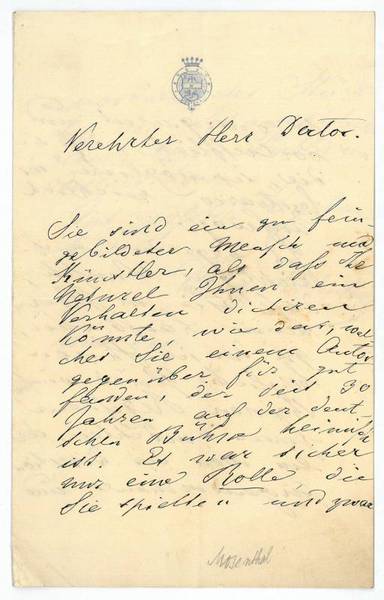 Verehrter Herr Doctor.
Sie sind ein zu fein
gebildeter Mensch und
Künstler, als daß die
Ihnen ein
Verhalten dictiren
könnte, wie das, wel
ches Sie einem Autor
gegenüber für gut
fanden, der seit 30
Jahren auf der deut
schen Bühne heimisch
ist. Es war sicher
nur eine Rolle, die
Sie spielten und zwar
Mosenthal